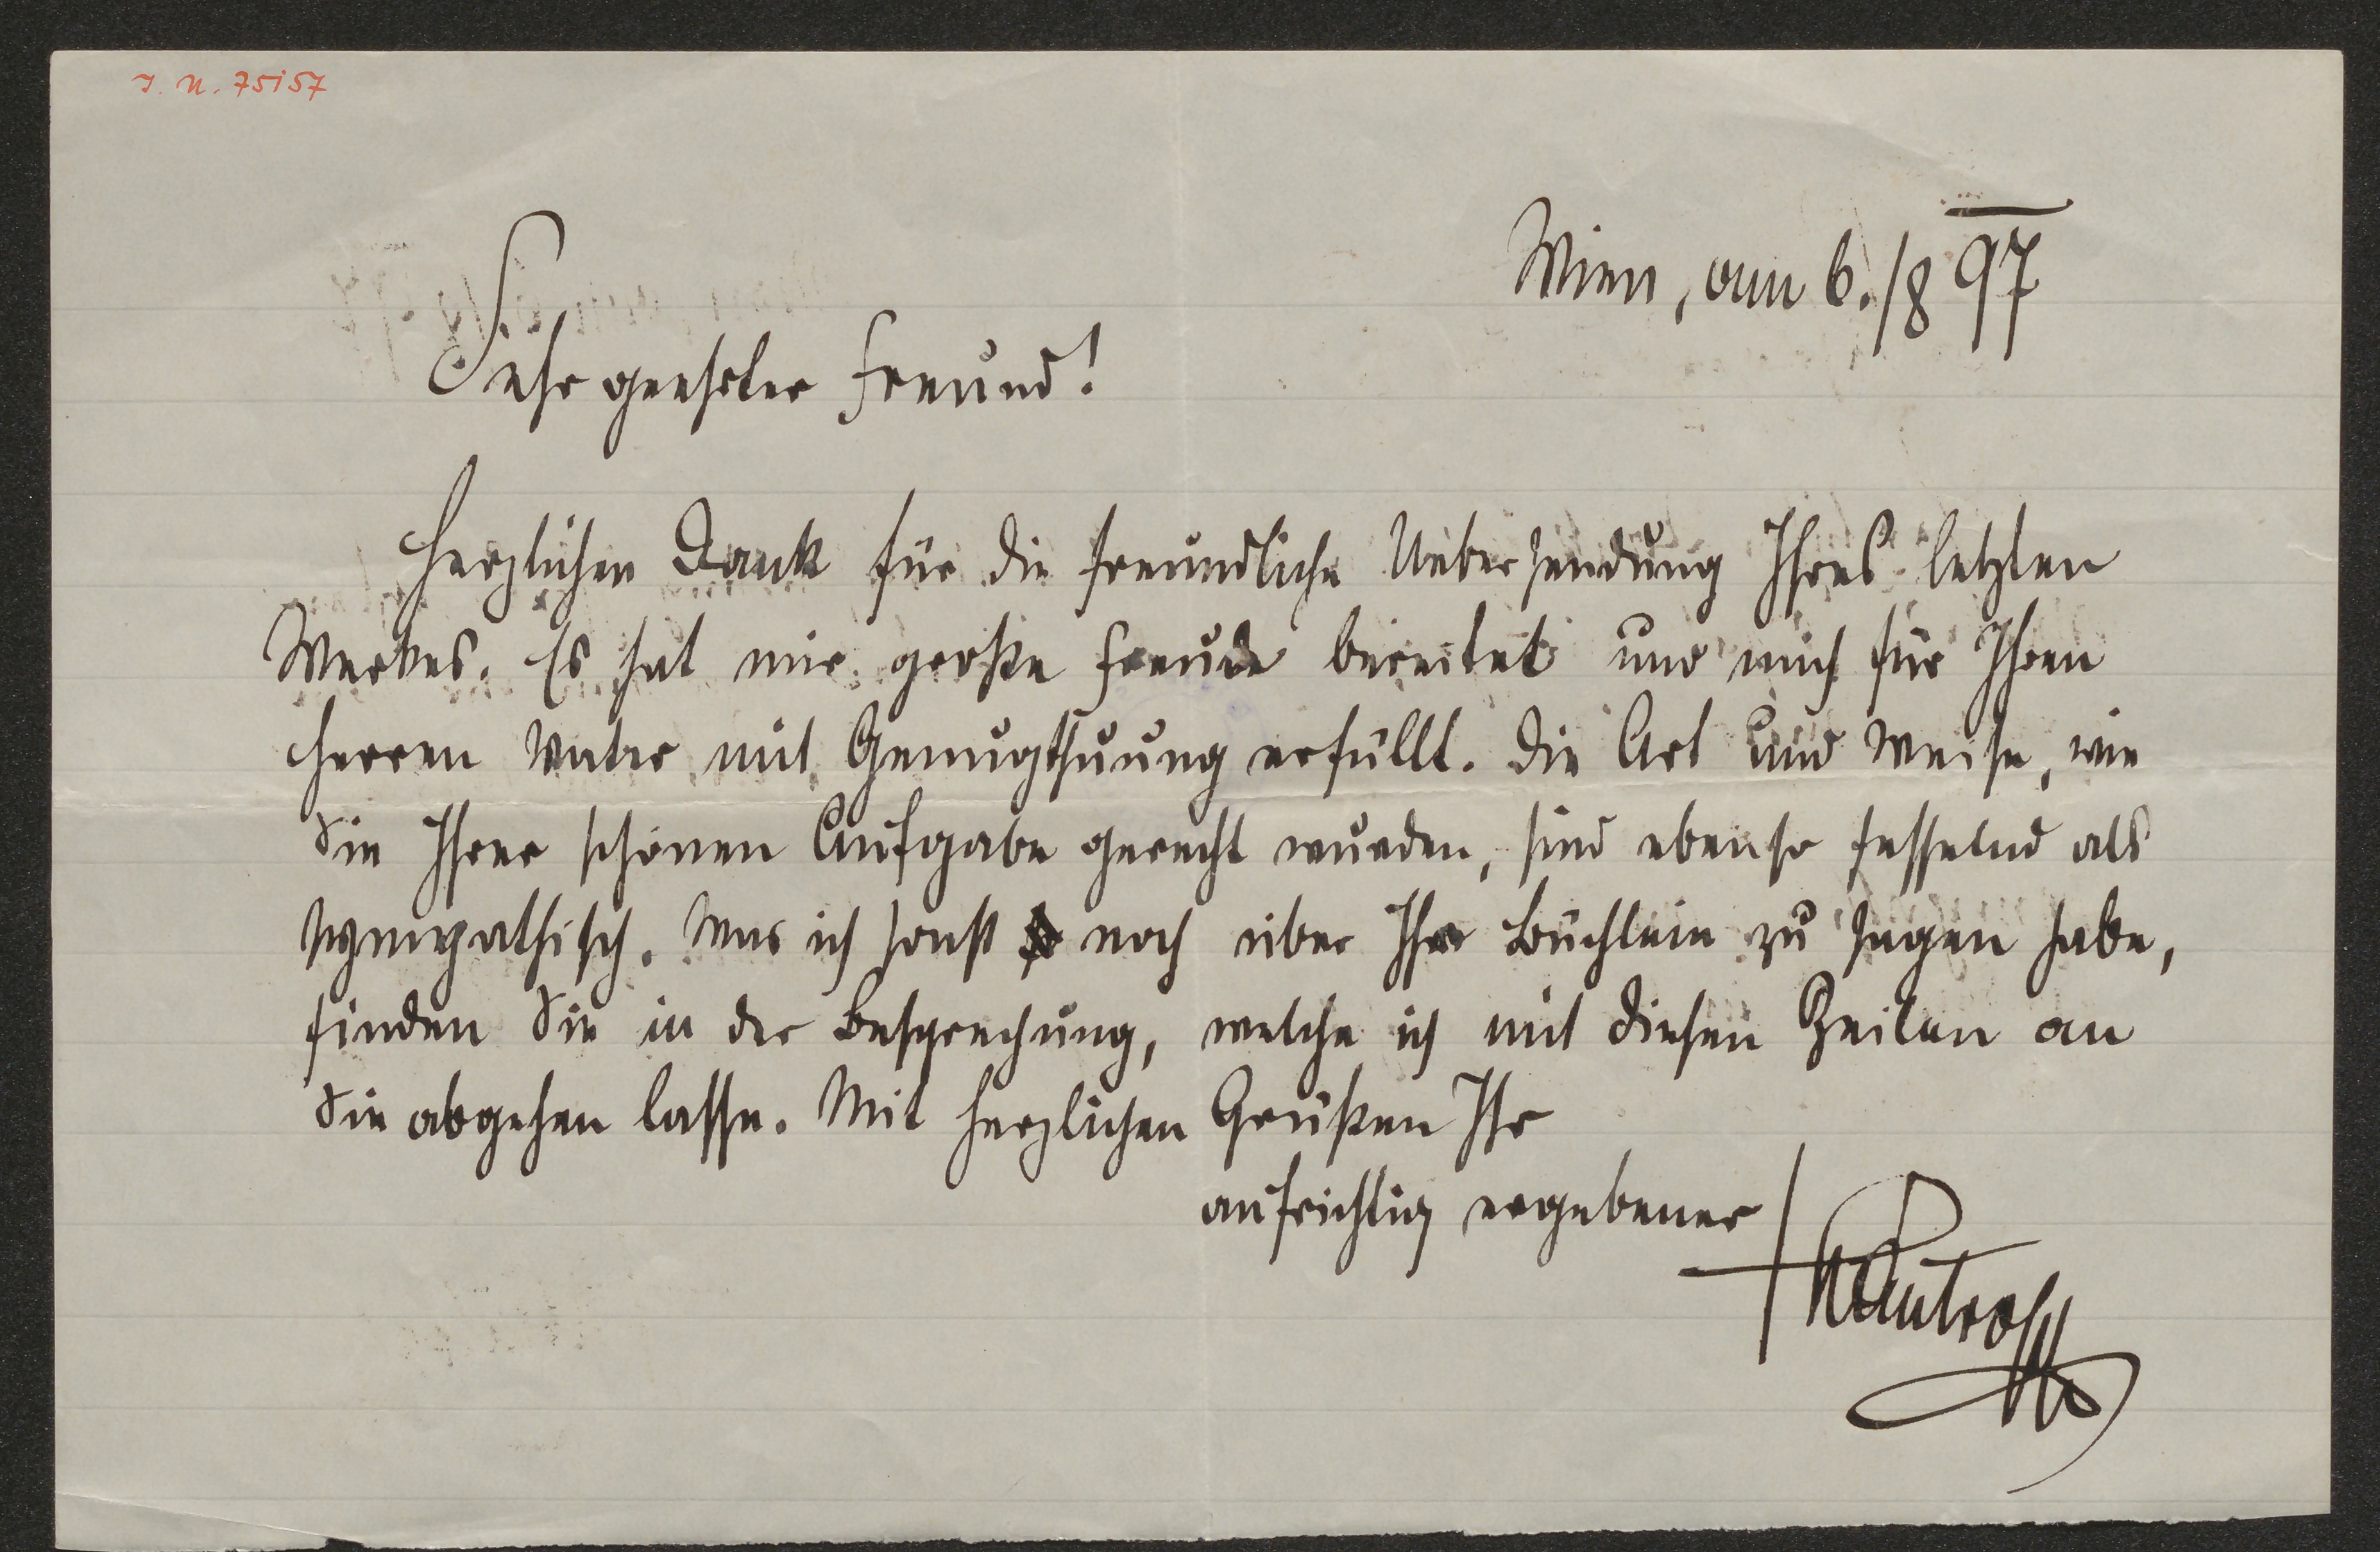 I. N. 75157
Wien, am 6./8 97
Sehr geehrter Freund!
Herzlichen Dank für die freundliche Uebersendung Ihres letzten
Werkes. Es hat mir große Freude bereitet und mich für Ihren
Herren Vater mit Genugthuung erfüllt. Die Art und Weise, wie
Sie Ihrer schönen Aufgabe gerecht wurden, sind ebenso fesselnd als
sympathisch. Was ich sonst noch über Ihr Büchlein zu sagen habe,
finden Sie in der Besprechung, welche ich mit diesen Zeilen an
Sie abgehen lasse. Mit herzlichen Grüßen Ihr
aufrichtig ergebener